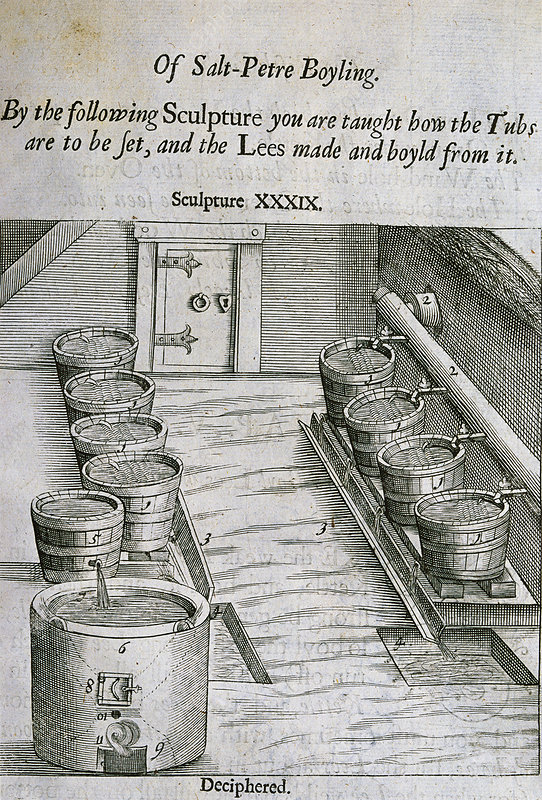 Of Salt-Petre Boyling.
By the following Sculpture you are taught how the Tubs
are to be ſet, and the Lees made and boyld from it.
Sculpture XXXIX.
2
2
1
1
1
1
1
3
3
5
4
4
6
8
10
11
9
Deciphered.